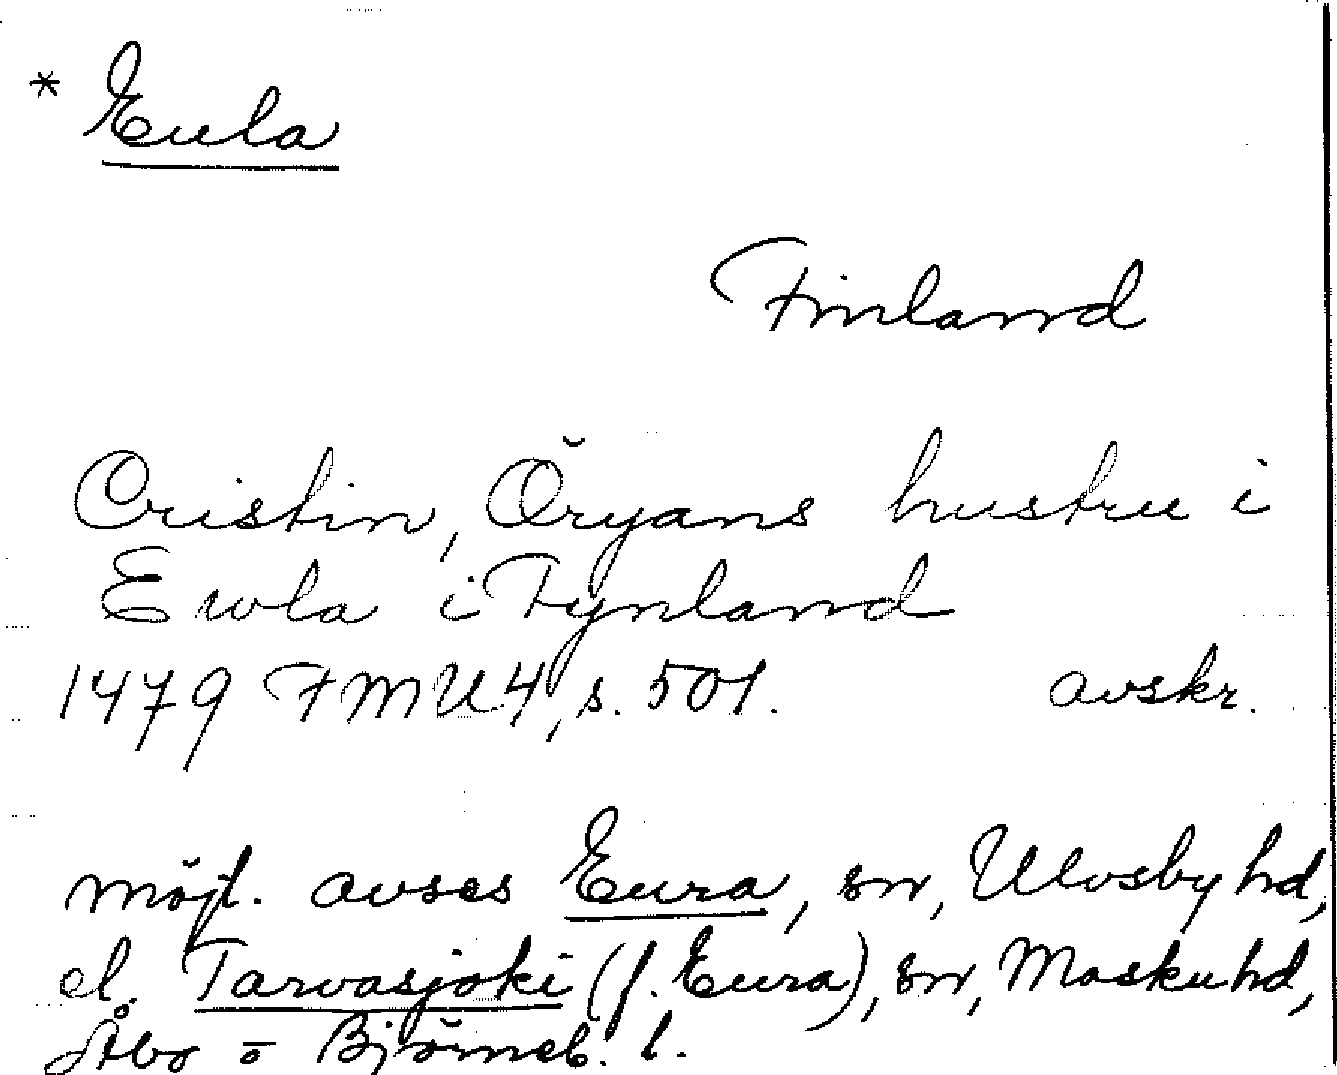 * Eula
Finland
Cristin, Öryans hustru i
Ewla i Fynland
1479 FMU4, s. 501. avskr.
möjl. avses Eura, sn, Ulvsby hd,
el. Tarvasjoki (f. Eura), sn, Masku hd,
Åbo o Björneb. l.